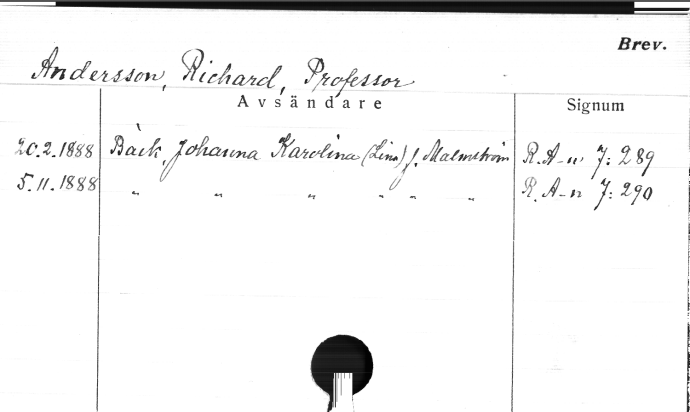 Brev.
Andersson, Richard, Professor
Avsändare Signum
20.2.1888 Bäck, Johanna Karolina (Lina) f. Malmström R. A-n 7: 289
5.11.1888 " " " " " " R. A-n 7: 290